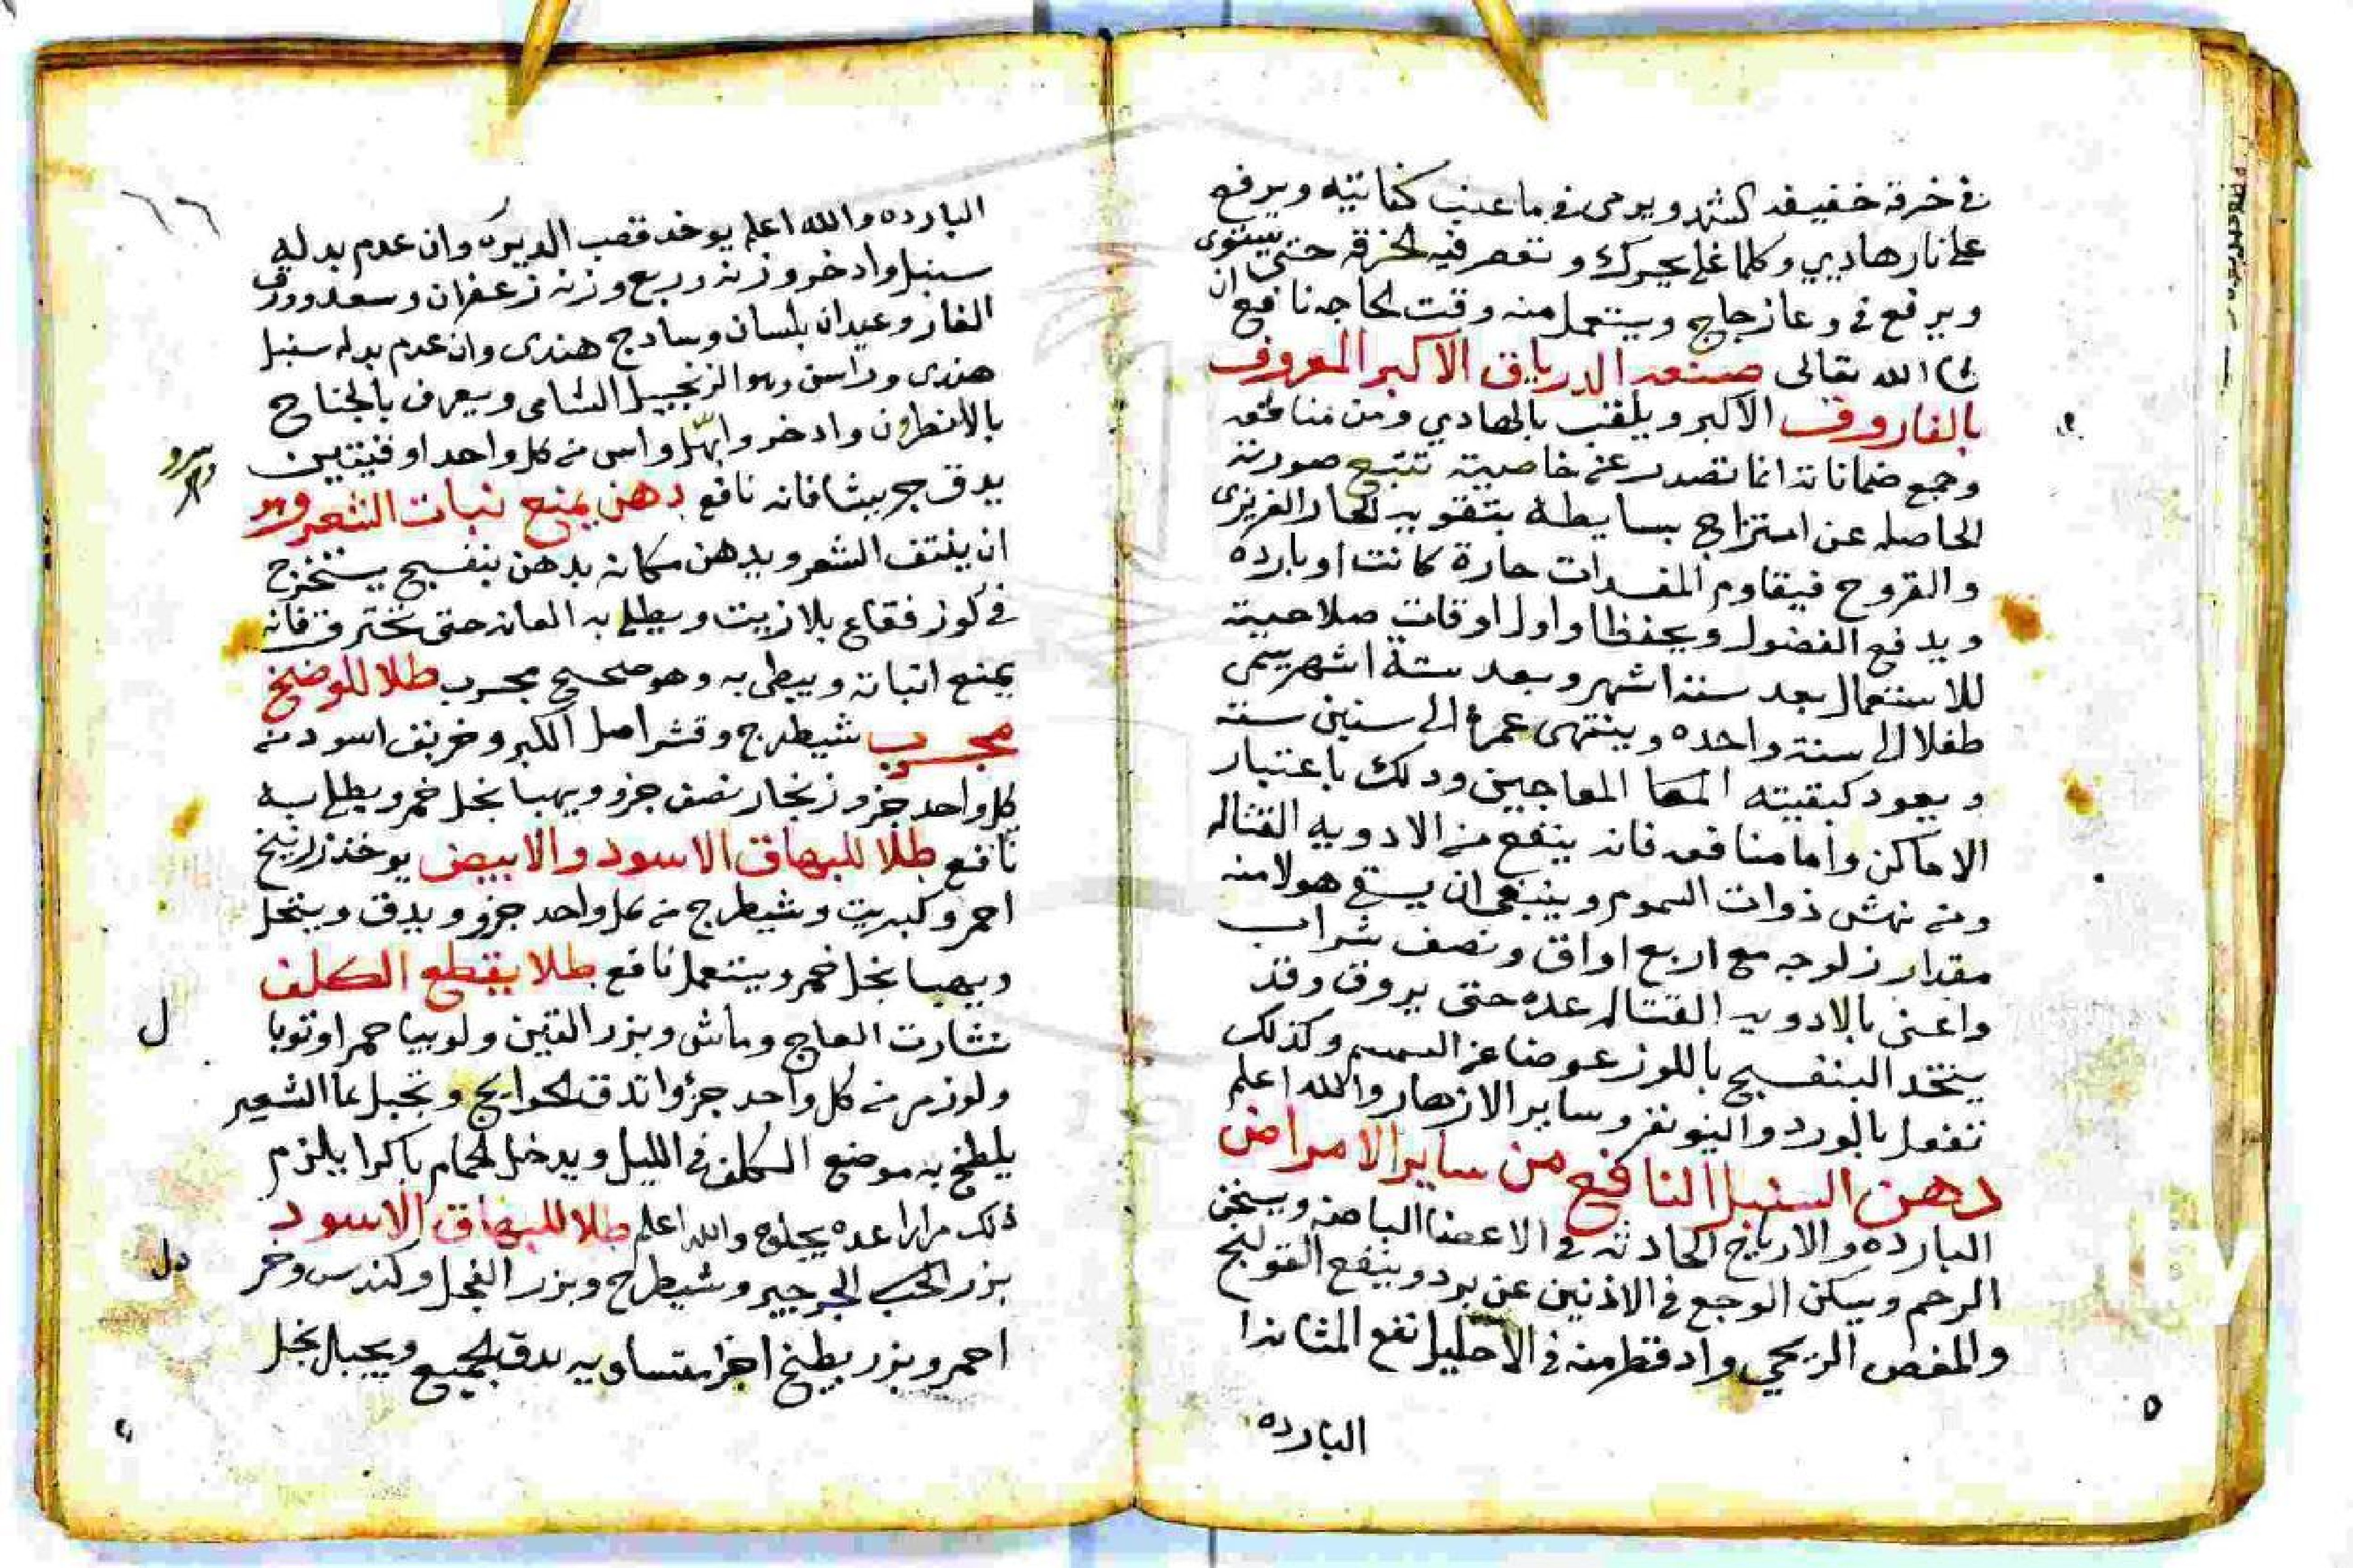 في خرقة خفيفه الشد ويرمى في ما عنب كفايته ويرفع
على نار هاديي وكلما غلي يحرك وتعصر فيه الخرقه حتى يستوى
ويرفع في وعا زجاج ويستعمل منه وقت الحاجه نافع ان
شا الله تعالى صنعة الدرياق الاكبر المعروف
بالفاروق الاكبر ويلقب بالهادي ومن منافعه
وجمع ضمانات انما تصدر عن خاصيته تتبع صورته
الحاصله عن امتزاج بسايطه بتقويه الحار الغريزى
والقروح فيقاوم المفسدات حارة كانت او بارده
ويدفع الفضول ويحفظها واول اوقات صلاحيته
للاستعمال بعد ستة اشهر وبعد ستة اشهر يسمى
طفلا الى سنة واحده وينتهى عمره الى ستين سنة
ويعود كبقيته المعاجين ودلك باعتبار
الاماكن واما منافعه فانه ينفع من الادويه القتاله
ومن نهش ذوات السموم وينبغى ان يسقى هولا منه
مقدار زلوجه مع اربع اواق ونصف شراب
واعنى بالادويه القتاله عده حتى يروق وقد
يتخد البنفسج باللوز عوضا عن السمسم وكذلك
تفعل بالورد والنيونفر وساير الازهار والله اعلم
دهن السنبل النافع من ساير الامراض
البارده والارياح الحادثه في الاعضا الباطنه ويسخن
الرحم ويسكن الوجع في الاذنين عن برد وينفع القولنج
والمغص الريحي واد قطر منه في الاحليل نفع المثانه
البارده
٦٦
البارده والله اعلم يوخد قصب الدريره وان عدم بدله
سنبل وادخر وزنه وربع وزنه زعفران وسعد وورق
الغار وعيدان بلسان وسادج هندى وان عدم بدله سنبل
هندى وراسن وهو الزنجبيل الشامى ويعرف بالجناح
بالانطرون وادخر وابهل واس من كل واحد اوقيتين
يدق جريشا فانه نافع دهن يمنع نبات الشعر وهو
ان ينتف الشعر ويدهن مكانه بدهن بنفسج يستخرج
في كوز فقاع بلا زيت ويطلى به العانه حتى تحترق فانه
يمنع انباته ويبطى به وهو صحيح مجرب طلا للوضخ
مجرب شيطرج وقشر اصل الكبر وخربق اسود من
كل واحد جزو زنجار نصف جزو ويهيا بخل خمر ويطلى به
نافع طلا للبهاق الاسود والابيض يوخذ زرنيخ
احمر وكبريت وشيطرج من كل واحد جزو ويدق وينخل
ويهيا بخل خمر ويستعمل نافع طلا يقطع الكلف
نشارت العاج وماش وبزر التين ولوبيا حمرا وتوبا
ولوز مر من كل واحد جزؤا تدق الحوايج وتجبل بما الشعير
يلطخ به موضع الكلف في الليل ويدخل الحمام باكرا يلزم
ذلك مرارا عده يجلوه والله اعلم طلا للبهاق الاسود
بزر الجرجير وشيطرج وبزر الفجل وكندس وخر
احمر وبزر بطيخ اجزا متساويه يدق الجميع ويجبل بخل